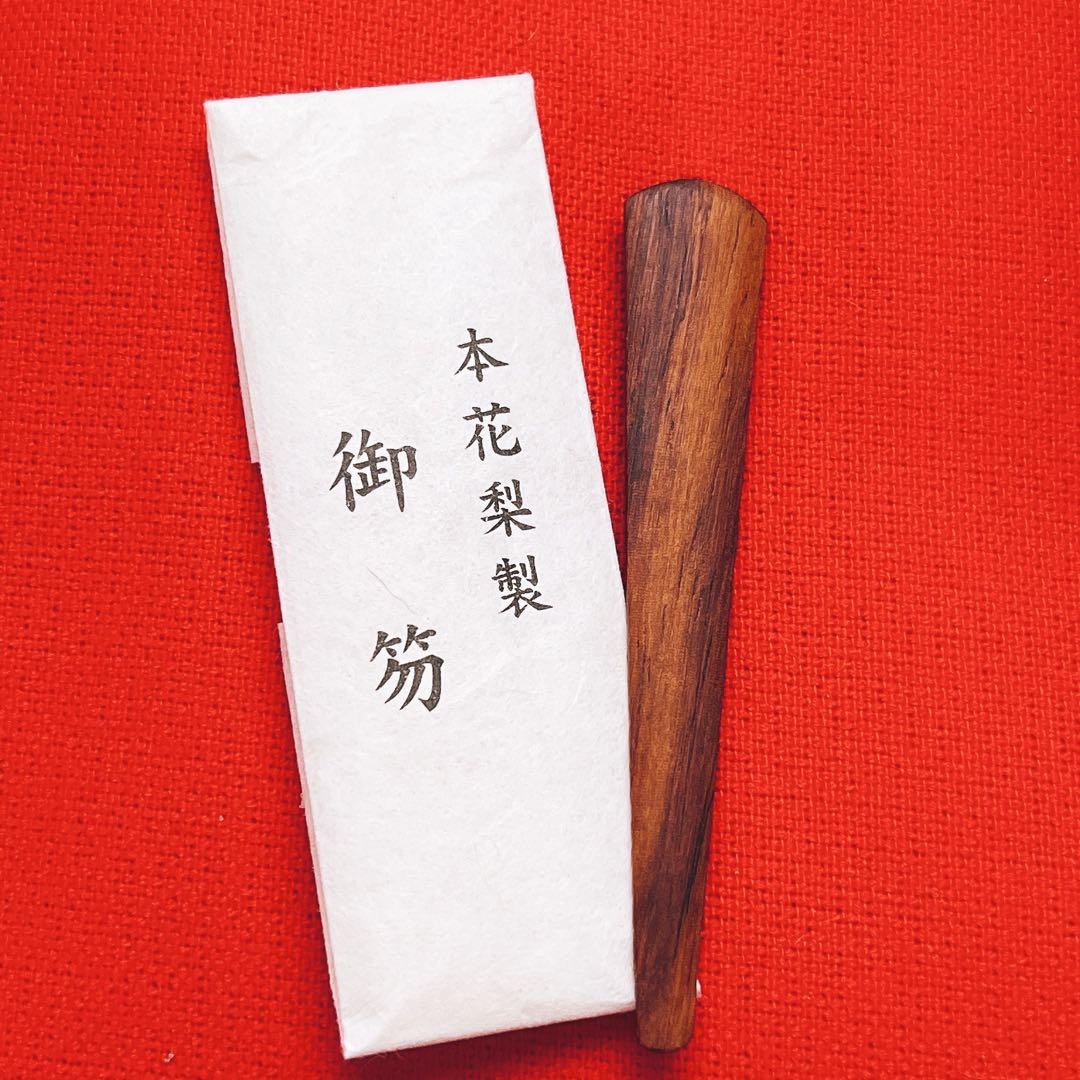 本花梨製
御笏